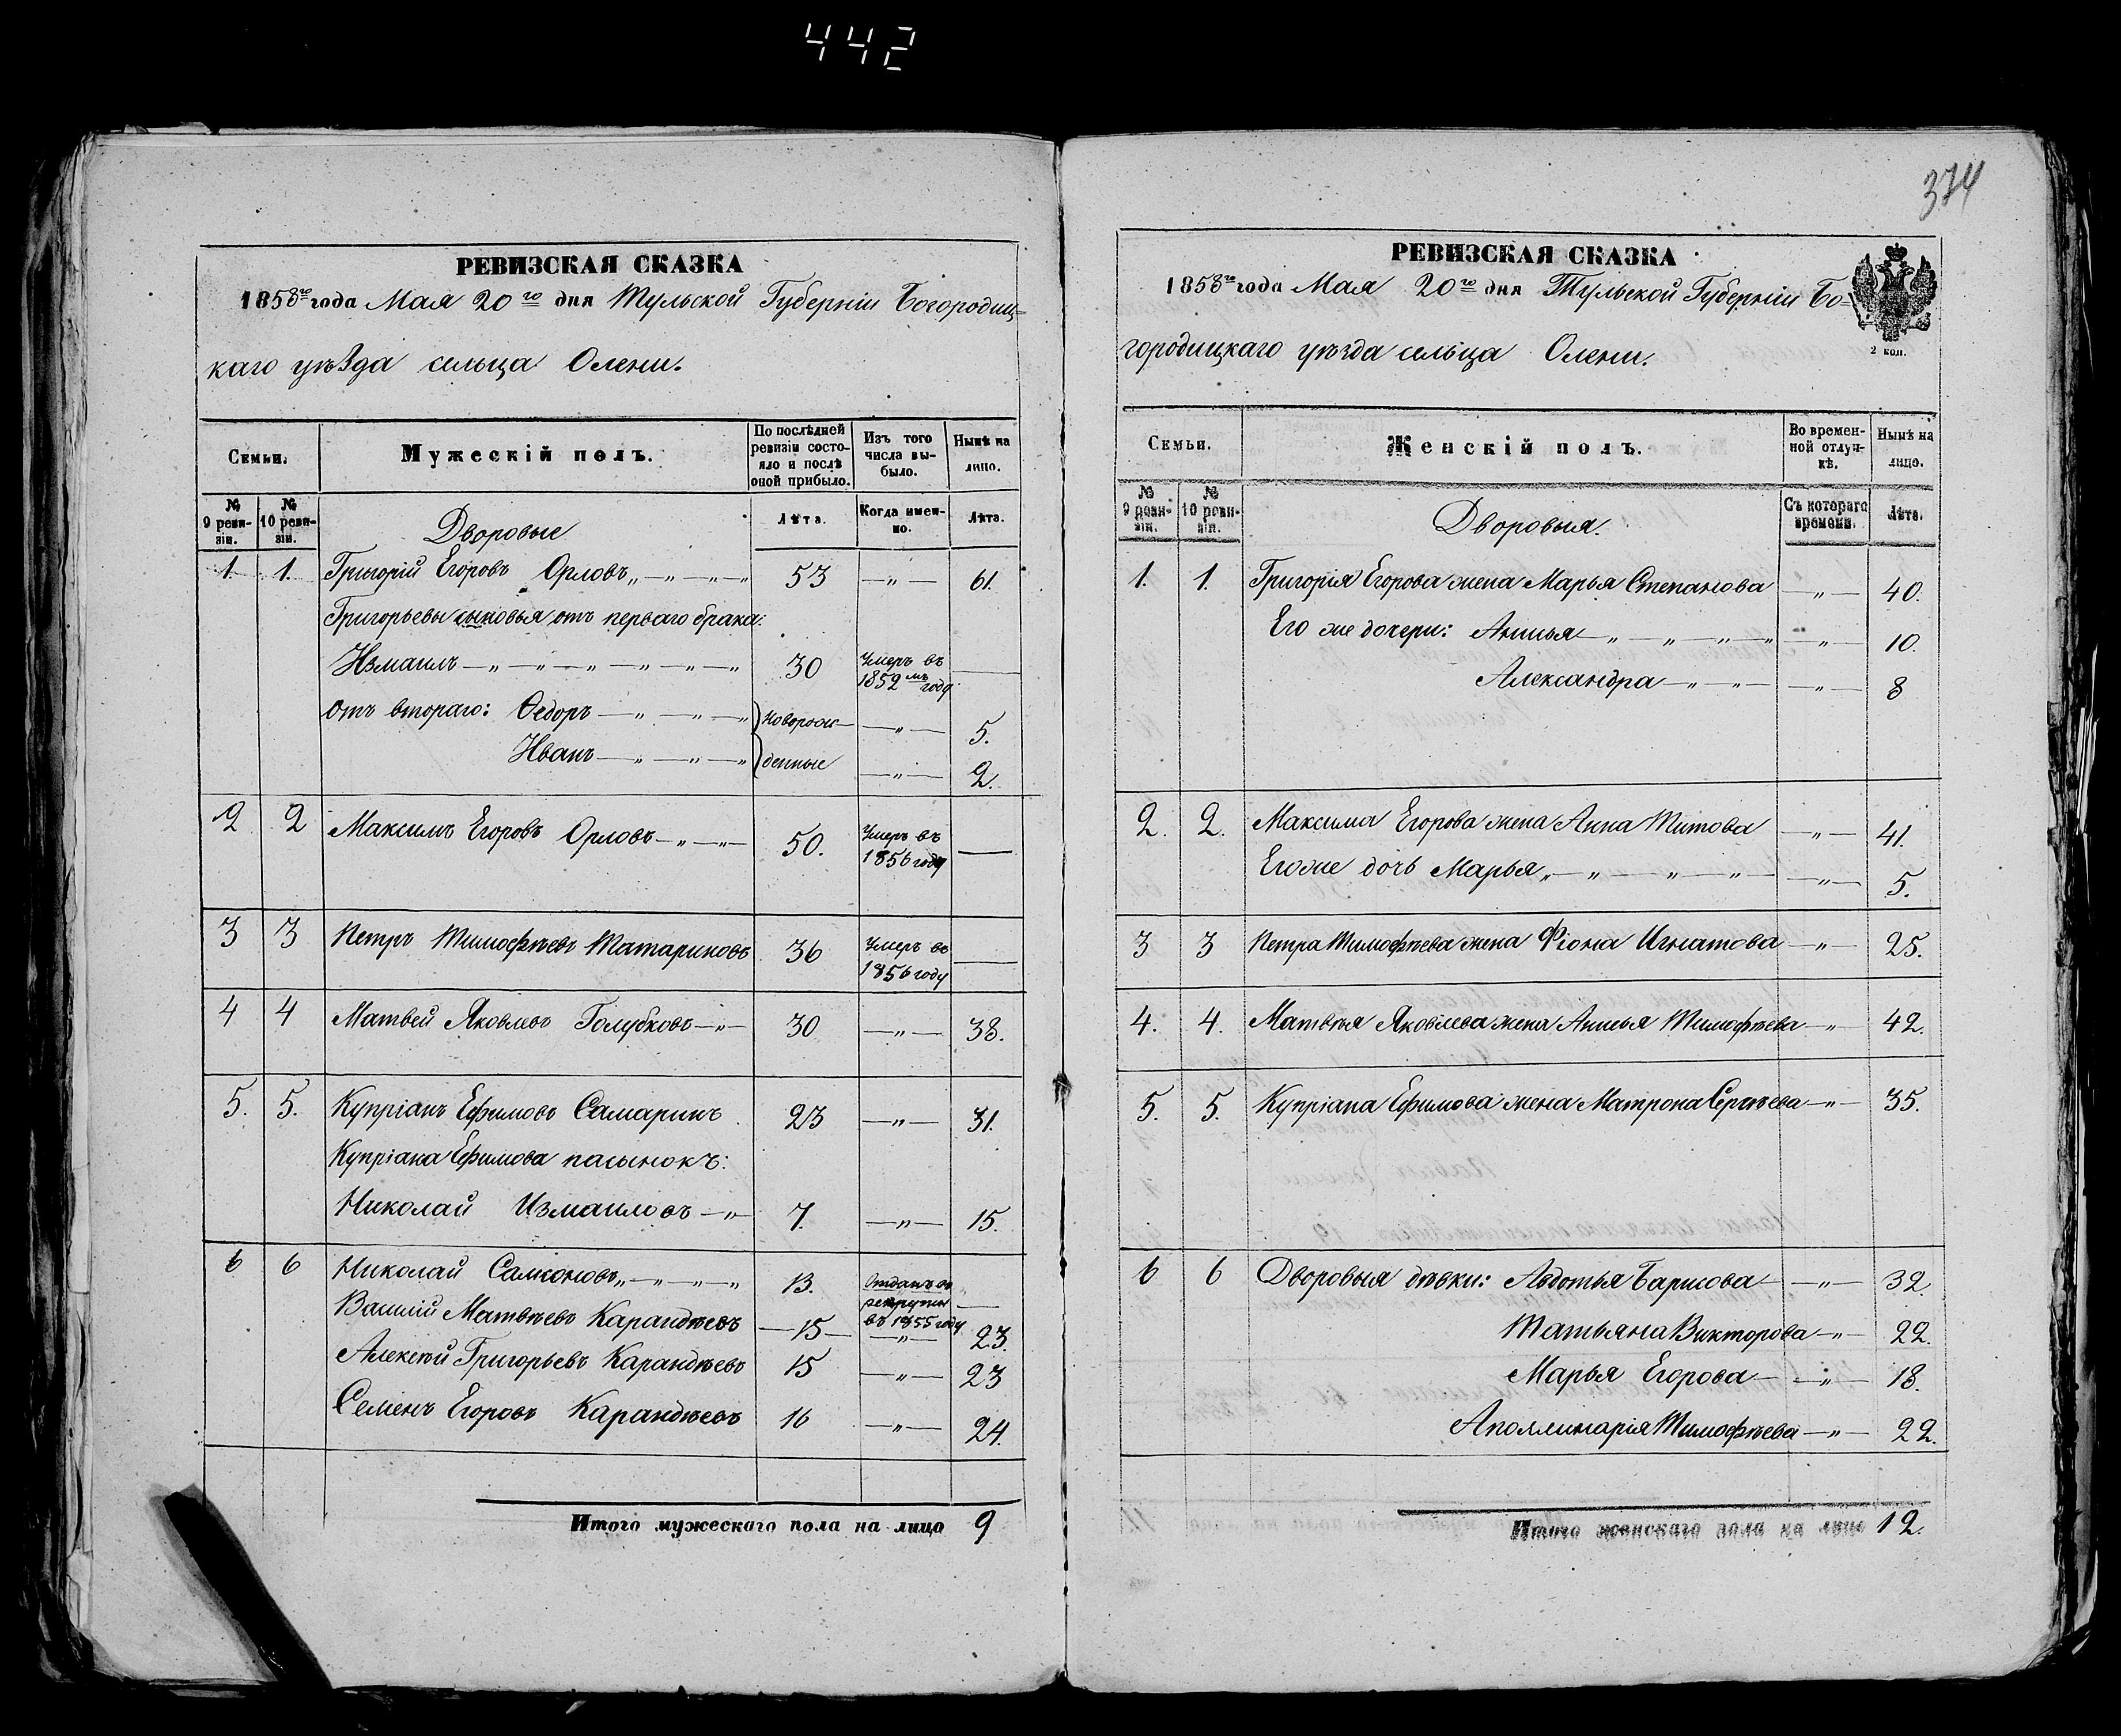 442
374
РЕВИЗСКАЯ СКАЗКА
1858го года Мая 20го дня Тульской Губерніи Богородиц=
каго уѣзда сельца Олени.
Семьи. Мужескій полъ. По послѣдней ревизіи состояло и послѣ оной прибыло. Изъ того числа выбыло. Нынѣ на лицо.
№ 9 ревизіи. № 10 ревизіи. Лѣта. Когда именно. Лѣта.
Дворовые
1. 1. Григорій Егоровъ Орловъ 53 —„— 61.
Григорьевы сыновья отъ перваго брака:
Измаилъ 30 Умеръ въ 1852мъ году —
Отъ втораго: Ѳедоръ новорож— —„— 5.
Иванъ денные —„— 2.
2 2 Максимъ Егоровъ Орловъ 50. Умеръ въ 1856 году —
3 3 Петръ Тимофѣевъ Татариновъ 36 Умеръ въ 1856 году —
4 4 Матвей Яковлевъ Голубковъ 30 —„— 38.
5. 5. Купріанъ Ефимовъ Самаринъ 23 —„— 31.
Купріана Ефимова пасынокъ:
Николай Измаиловъ 7. —„— 15.
6 6 Николай Самсоновъ 13. Отданъ въ рекруты въ 1855 году —
Василій Матвѣевъ Карандѣевъ —15— —„— 23.
Алексѣй Григорьевъ Карандѣевъ 15 —„— 23
Семенъ Егоровъ Карандѣевъ 16 —„— 24.
Итого мужескаго пола на лицо 9
РЕВИЗСКАЯ СКАЗКА
1858го года Мая 20го дня Тульской Губерніи Бо=
городицкаго уѣзда сельца Олени.
2 коп.
Семьи. Женскій полъ. Во временной отлучкѣ. Нынѣ на лицо.
№ 9 ревизіи. № 10 ревизіи. Съ котораго времени. Лѣта.
Дворовыя.
1. 1. Григорія Егорова жена Марья Степанова —„— 40.
Его же дочери: Анисья —„— 10.
Александра —„— 8
2. 2. Максима Егорова жена Анна Титова —„— 41.
Его же дочь Марья —„— 5.
3 3 Петра Тимофѣева жена Фіона Игнатова —„— 25.
4. 4. Матвѣя Яковлева жена Анисья Тимофѣева —„— 42.
5. 5. Купріана Ефимова жена Матрона Сергѣева —„— 35.
6 6 Дворовыя дѣвки: Авдотья Барисова —„— 32.
Татьяна Викторова —„— 22.
Марья Егорова —„— 18.
Аполлинарія Тимофѣева —„— 22.
Итого женскаго пола на лицо 12.